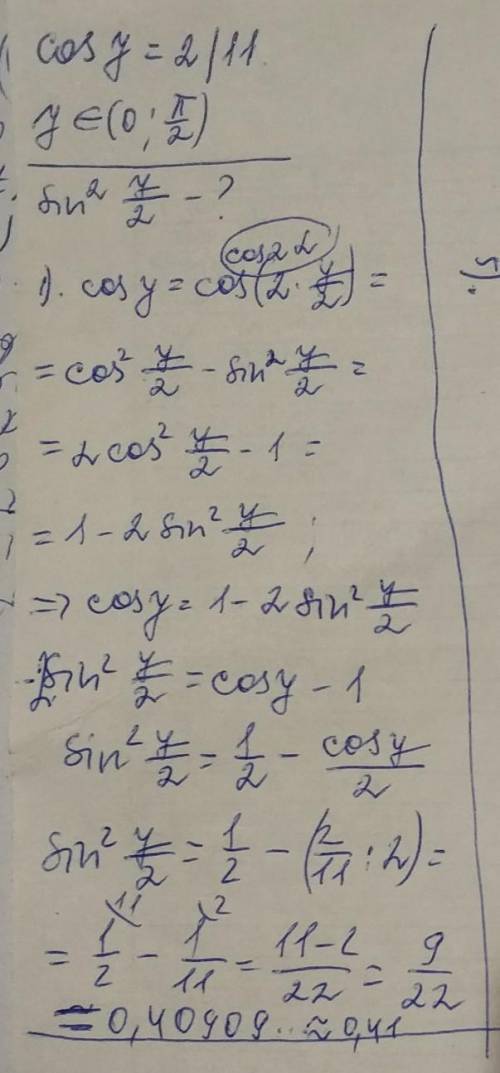 cos y = 2/11
y ∈ (0; π/2)
sin² y/2 - ?
cos2α
1). cos y = cos(2 · y/2) =
= cos² y/2 - sin² y/2 =
= 2cos² y/2 - 1 =
= 1 - 2 sin² y/2 ;
=> cos y = 1 - 2 sin² y/2
-2sin² y/2 = cos y - 1
sin² y/2 = 1/2 - cos y/2
sin² y/2 = 1/2 - (2/11 : 2) =
11 2
= 1/2 - 1/11 = 11-2/22 = 9/22
= 0,40909.. ≈ 0,41